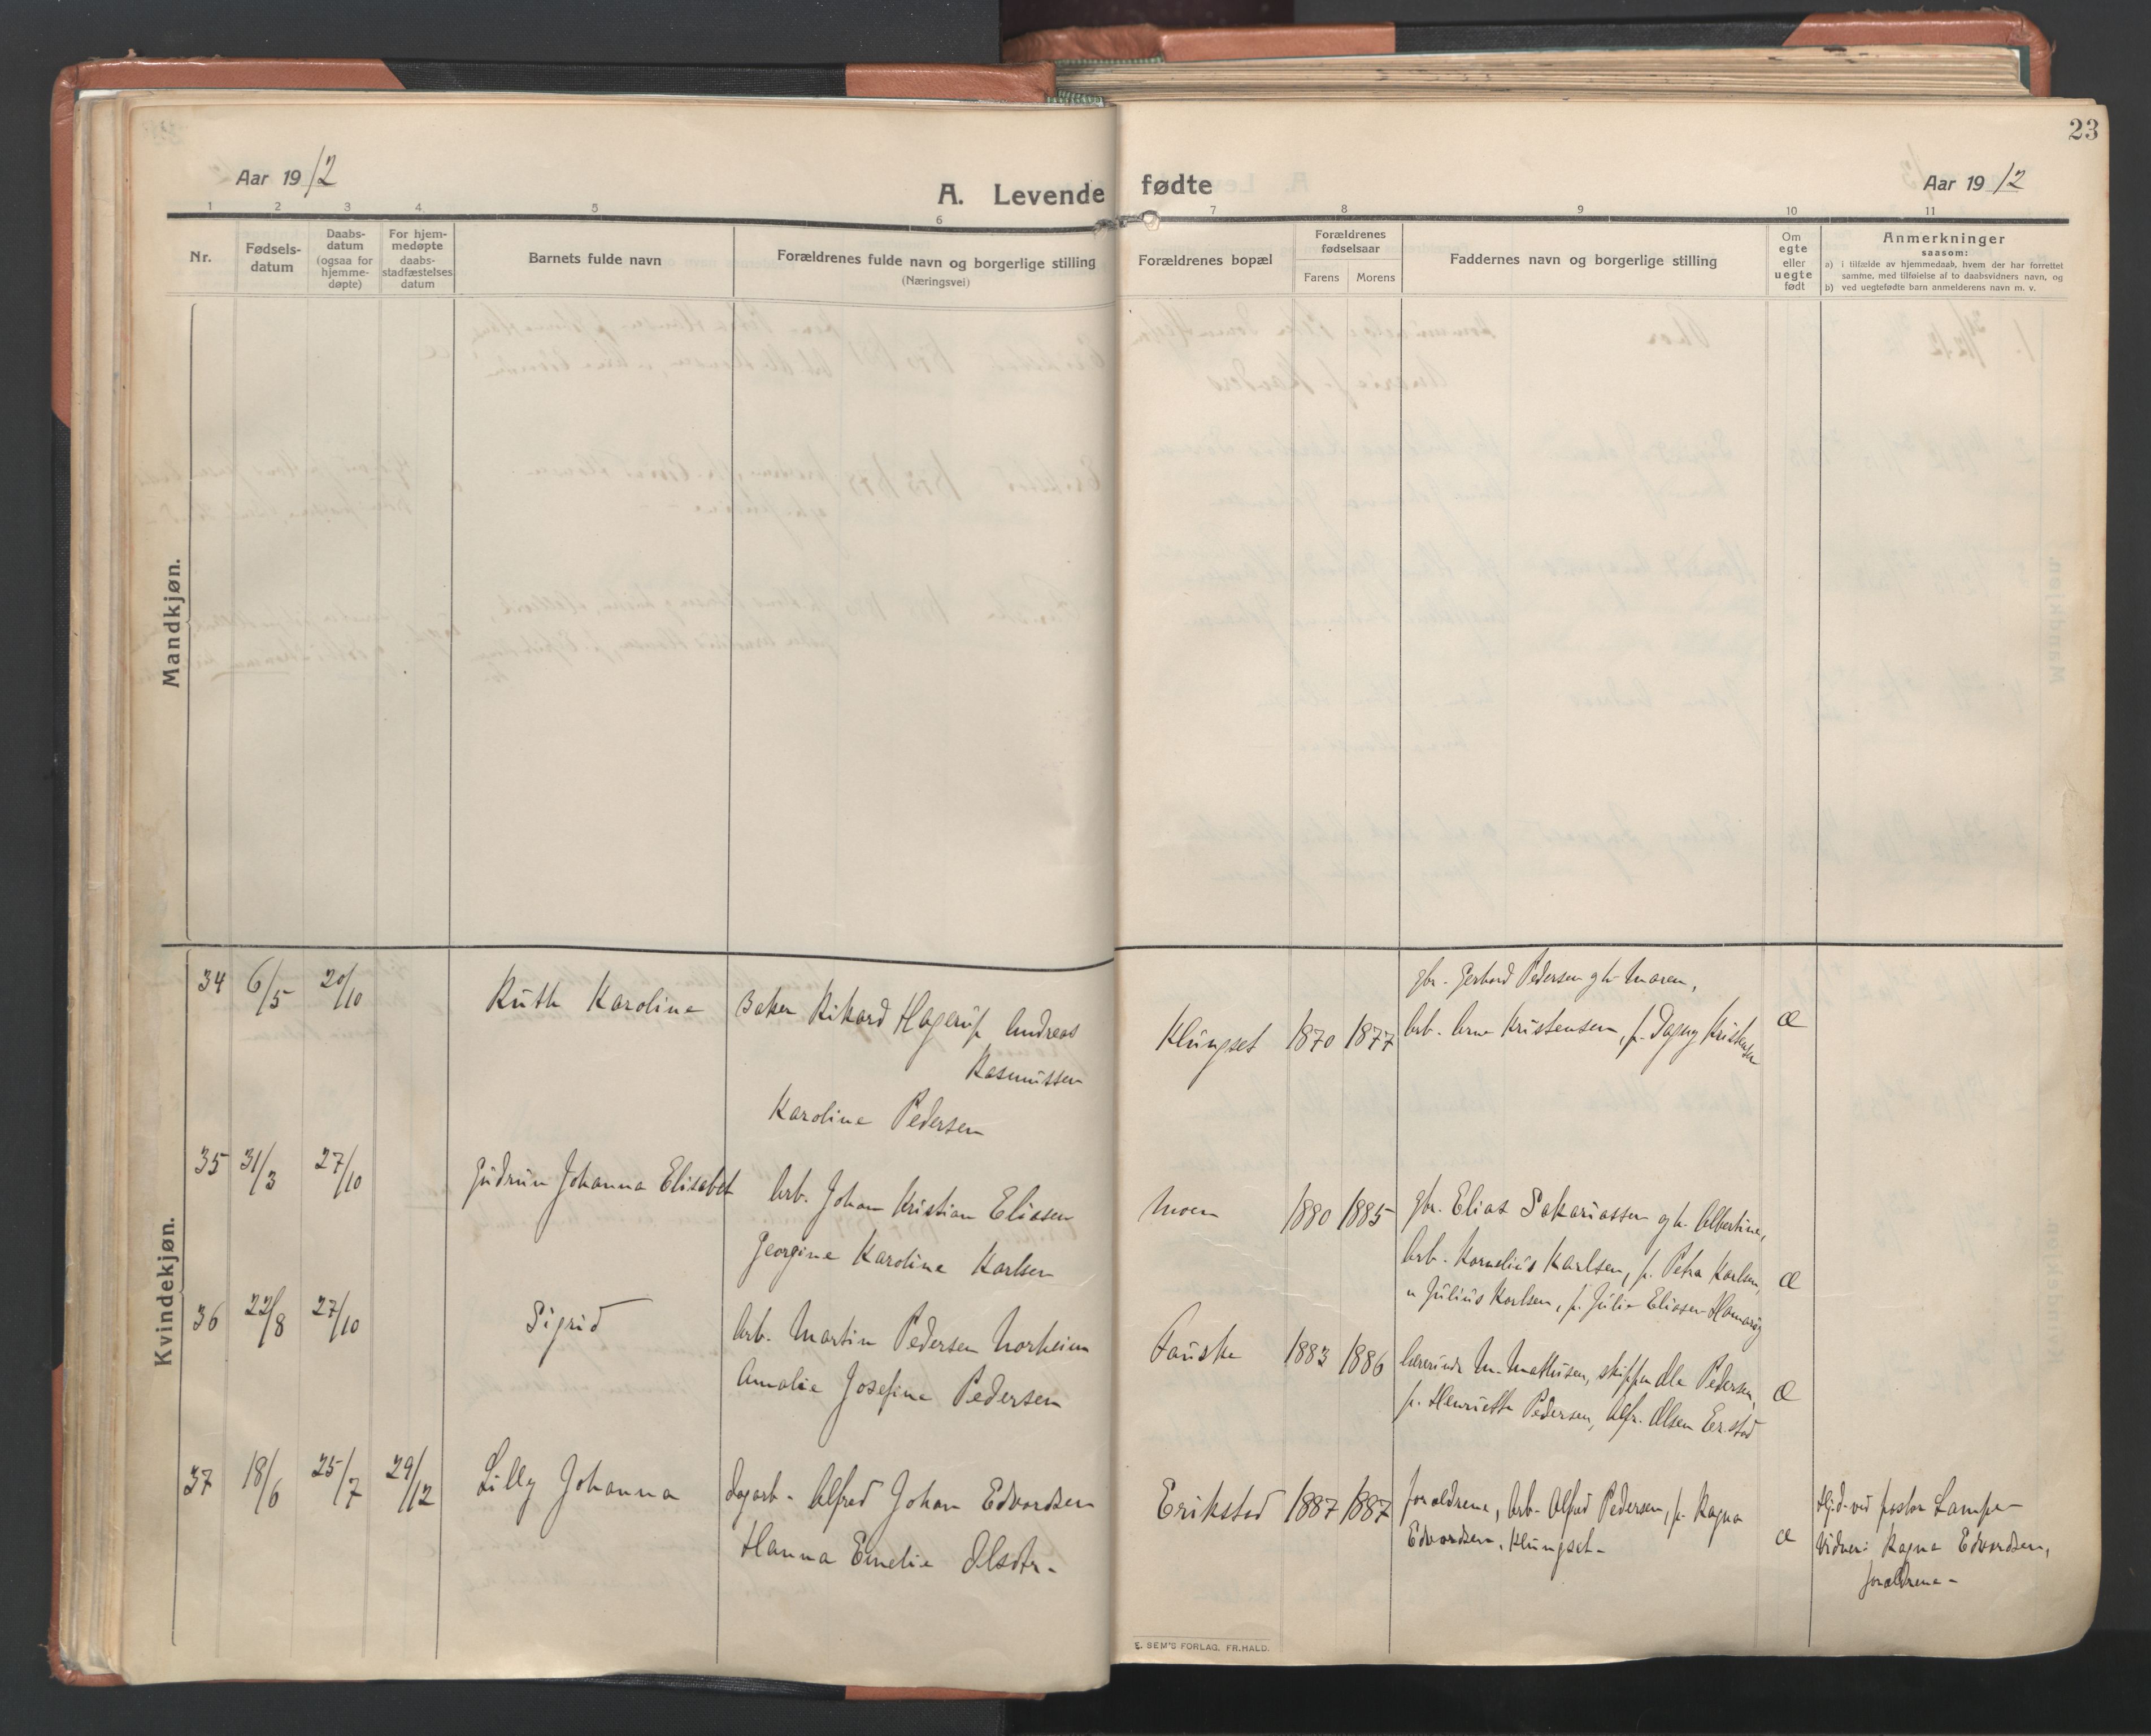 23
Aar 1912
A. Levende fødte
Aar 1912
1 2 3 4 5 6 7 8 9 10 11
Nr.
Fødsels-
datum
Daabs-
datum
(ogsaa for
hjemme-
døpte)
For hjem-
medøpte
daabs-
stadfæstelses
datum
Barnets fulde navn
Forældrenes fulde navn og borgerlige stilling
(Næringsvei)
Forældrenes bopæl
Forældrenes
fødselsaar
Farens Morens
Faddernes navn og borgerlige stilling
Om
egte
eller
uegte
født
Anmerkninger
saasom:
a) i tilfælde av hjemmedaab, hvem der har forrettet
samme, med tilføielse af to daabsvidners navn, og
b) ved uegtefødte barn anmelderens navn m. v.
Mandkjøn.
Kvindekjøn.
34 6/5 20/10 Ruth Karoline
Baker Rikard Hagerup Andreas
Rasmussen
Karoline Pedersen
Klungset 1870 1877
gbr. Gerhard Pedersen og h. Maren,
Arb. Arne Kristensen, p. Dagny Kristensen
Æ
35 31/3 27/10 Gudrun Johanna Elisabet
Arb. Johan Kristian Eliasen
Georgine Karoline Karlsen
Moen 1880 1885
gbr. Elias Sakariassen og h. Albertine,
Arb. Kornelius Karlsen, p. Petra Karlsen,
u Julius Karlsen, p. Julie Eliasen
Æ
36 22/8 27/10 Sigrid
Arb. Martin Pedersen Norheim
Amalie Josefine Pedersen
Fauske 1883 1886
Lærerinde M. Mathisen, skipper Ole Pedersen,
p. Henriette Pedersen, Alfr. Olsen Er.stad
Æ
37 18/6 25/7 29/12 Lilly Johanna
Dagarb. Alfred Johan Edvardsen
Hanna Emelie Olsdtr.
Erikstad 1887 1887
forældrene, Arb. Alfred Pedersen, p. Ragna
Edvardsen, Klungset.
Æ
Hjd. ved pastor Lampe
Vidner: Ragna Edvardsen,
forældrene.
E. SEM'S FORLAG, FR.HALD.